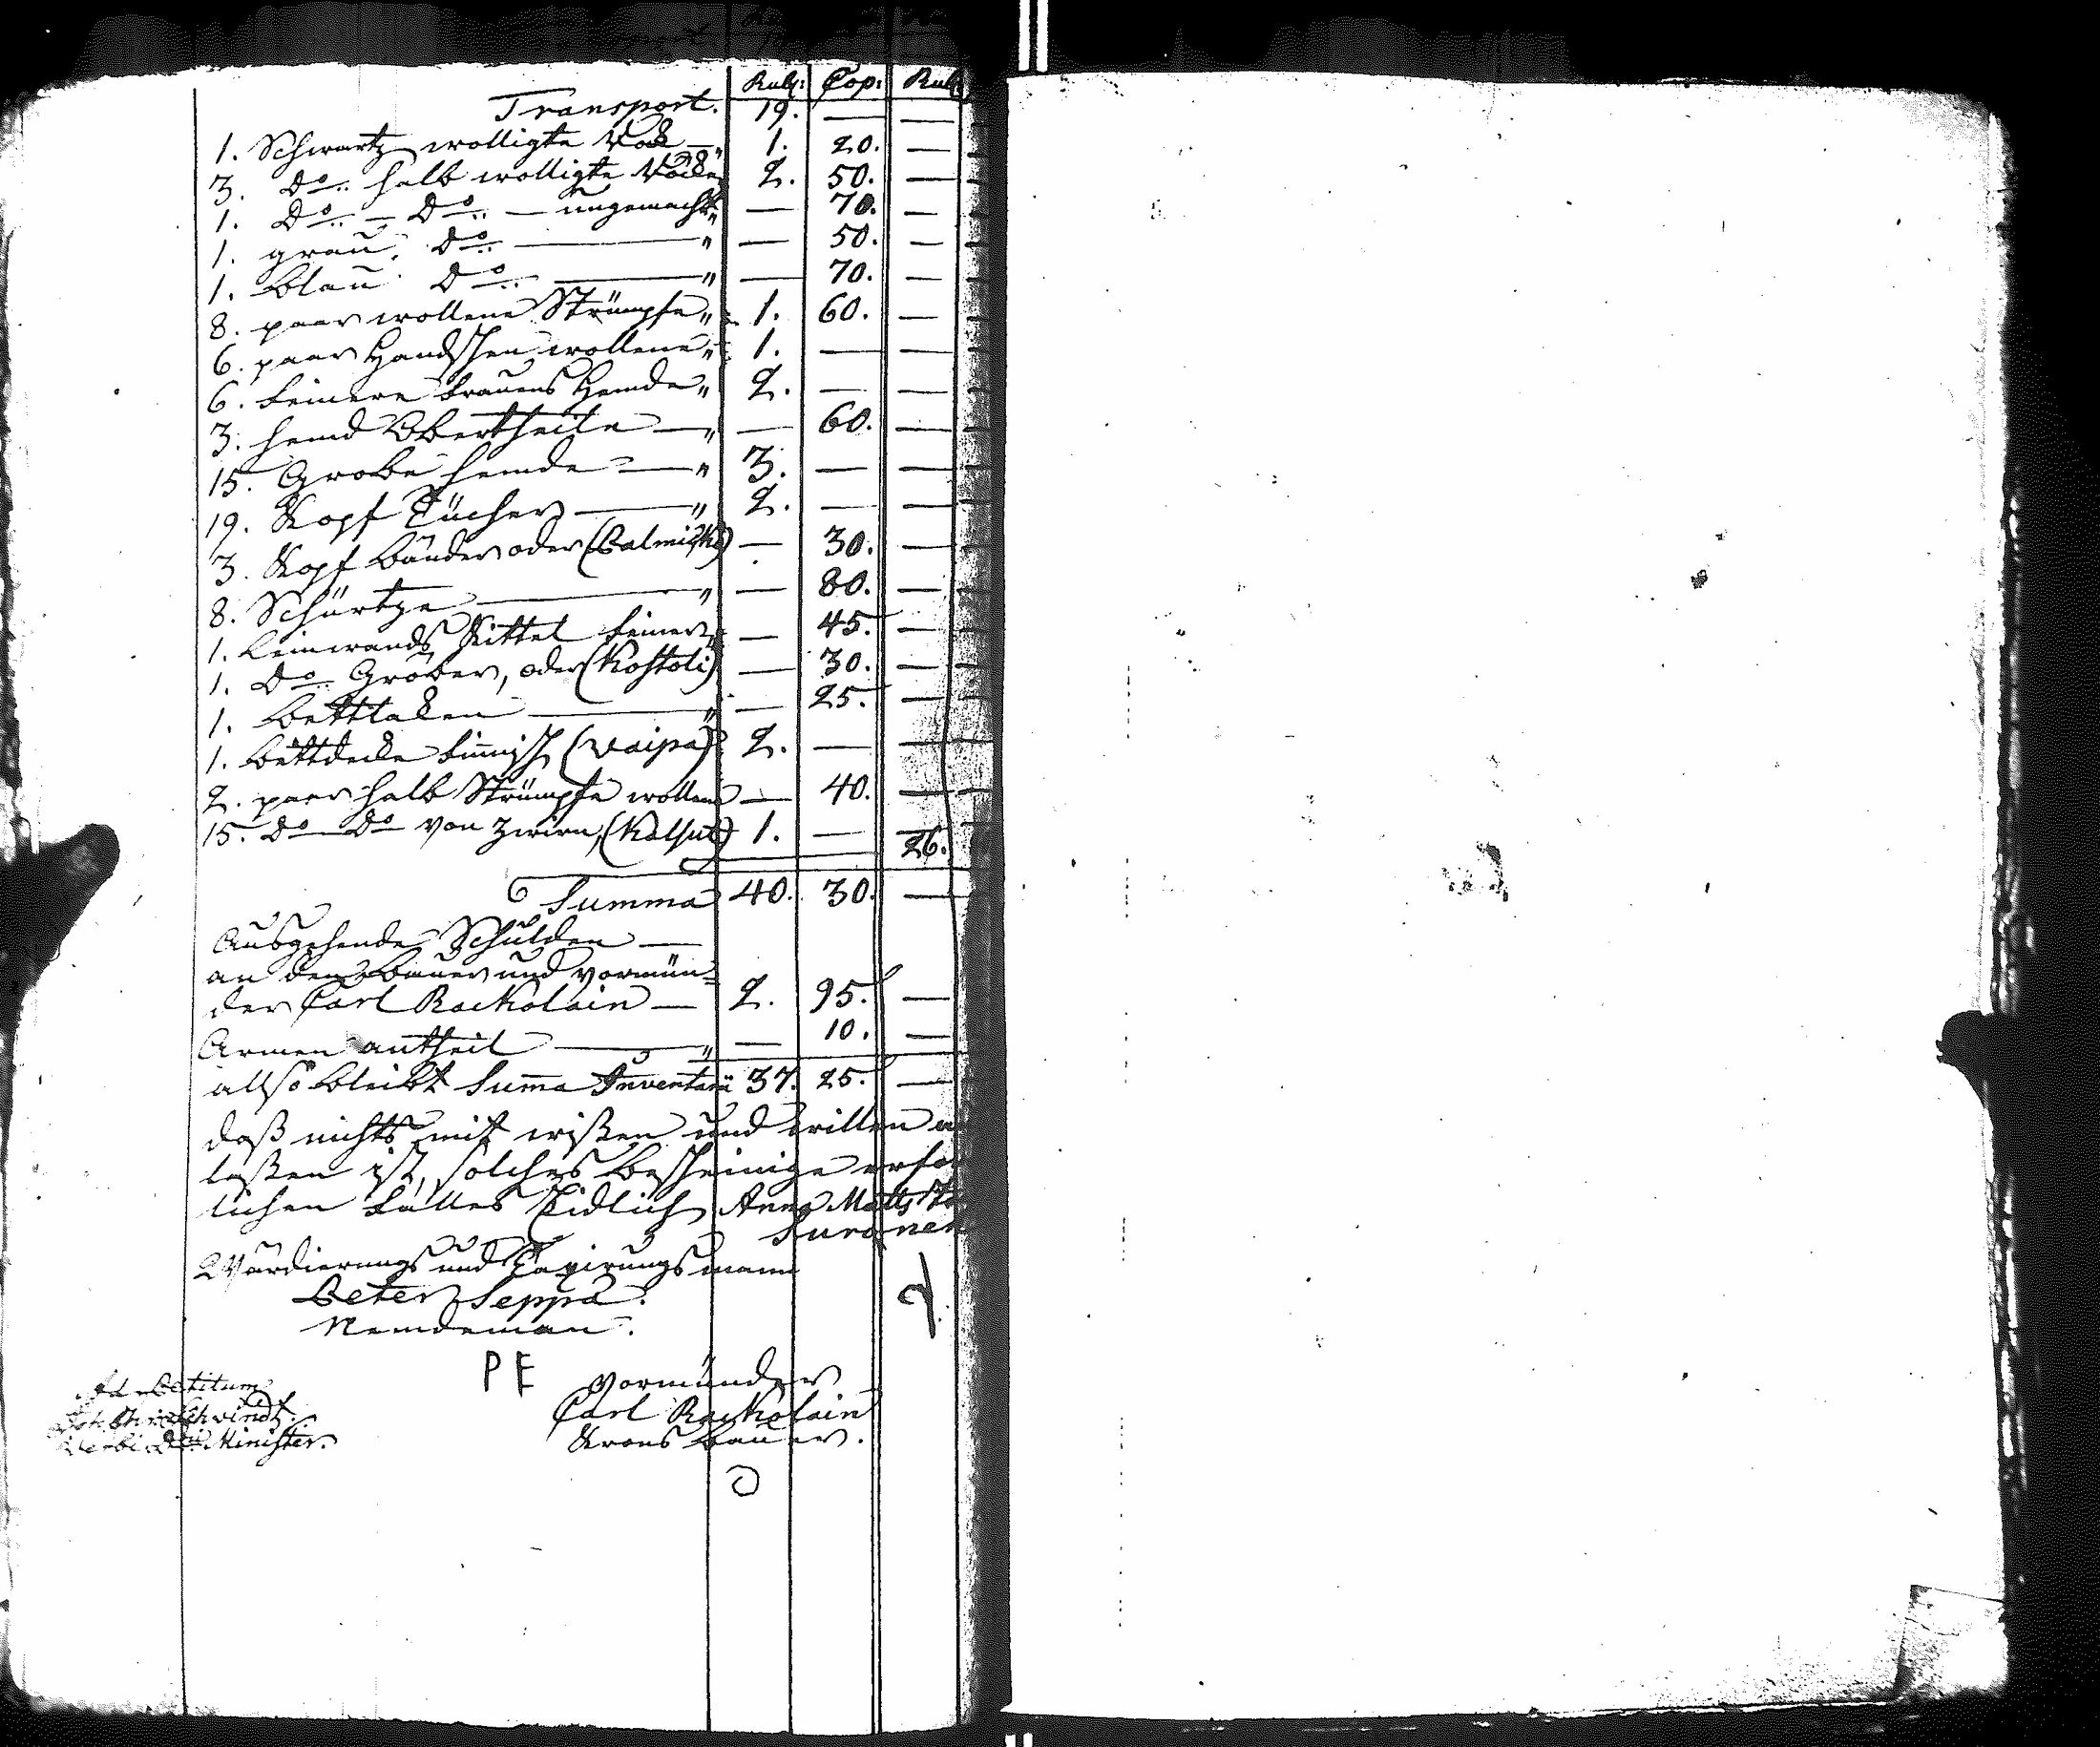 Rub: Cop: Rub
Transport. 19. — —
1. Schwartz wolligte Rock — 1. 20. —
3. Do halb wolligte Röcke 2. 50. —
1. Do — Do — ungemacht — 70. —
1. grau Do — " — 50. —
1. blau Do — " — 70. —
8. paar wollene Strümpfe " 1. 60. —
6. paar Handschen wollene " 1. — —
6. feinere frauens Hemde " 2. — —
3. hemd Obertheile — " — 60. —
15. Grobe hemde — " 3. — —
19. Kopf Tücher — " 2. — —
3. Kopf bänder oder — 30. —
8. Schürtze — " — 80. —
1. Leinwands Kittel feiner — 45. —
1. Do Gröber, oder (Kostoli) — 30. —
1. bettlaken — " — 25. —
1. bettdecke finnisch (Vaipa) 2. — —
2. paar halb Strümpfe wollene — 40. —
15. Do Do von Zwirn, 1. — 26.
Summa 40. 30. —
Ausgehende Schulden —
an den bauer und vormün-
der Carl Rackolain — 2. 95. —
Armen antheil — " — 10. —
allso bleibt Summa Inventarii 37. 25. —
daß nichts mit wißen und willen
laßen ist, solches bescheinige
lichen falles Eidlich Anna Matts
Suronen
Wärdierungs und Taxirungs mann
Peter Seppä.
Nemdeman.
PE
Vormünder
Carl Rackolain
Krons bauer.
Ad
Schwindt
Verbi Minister.